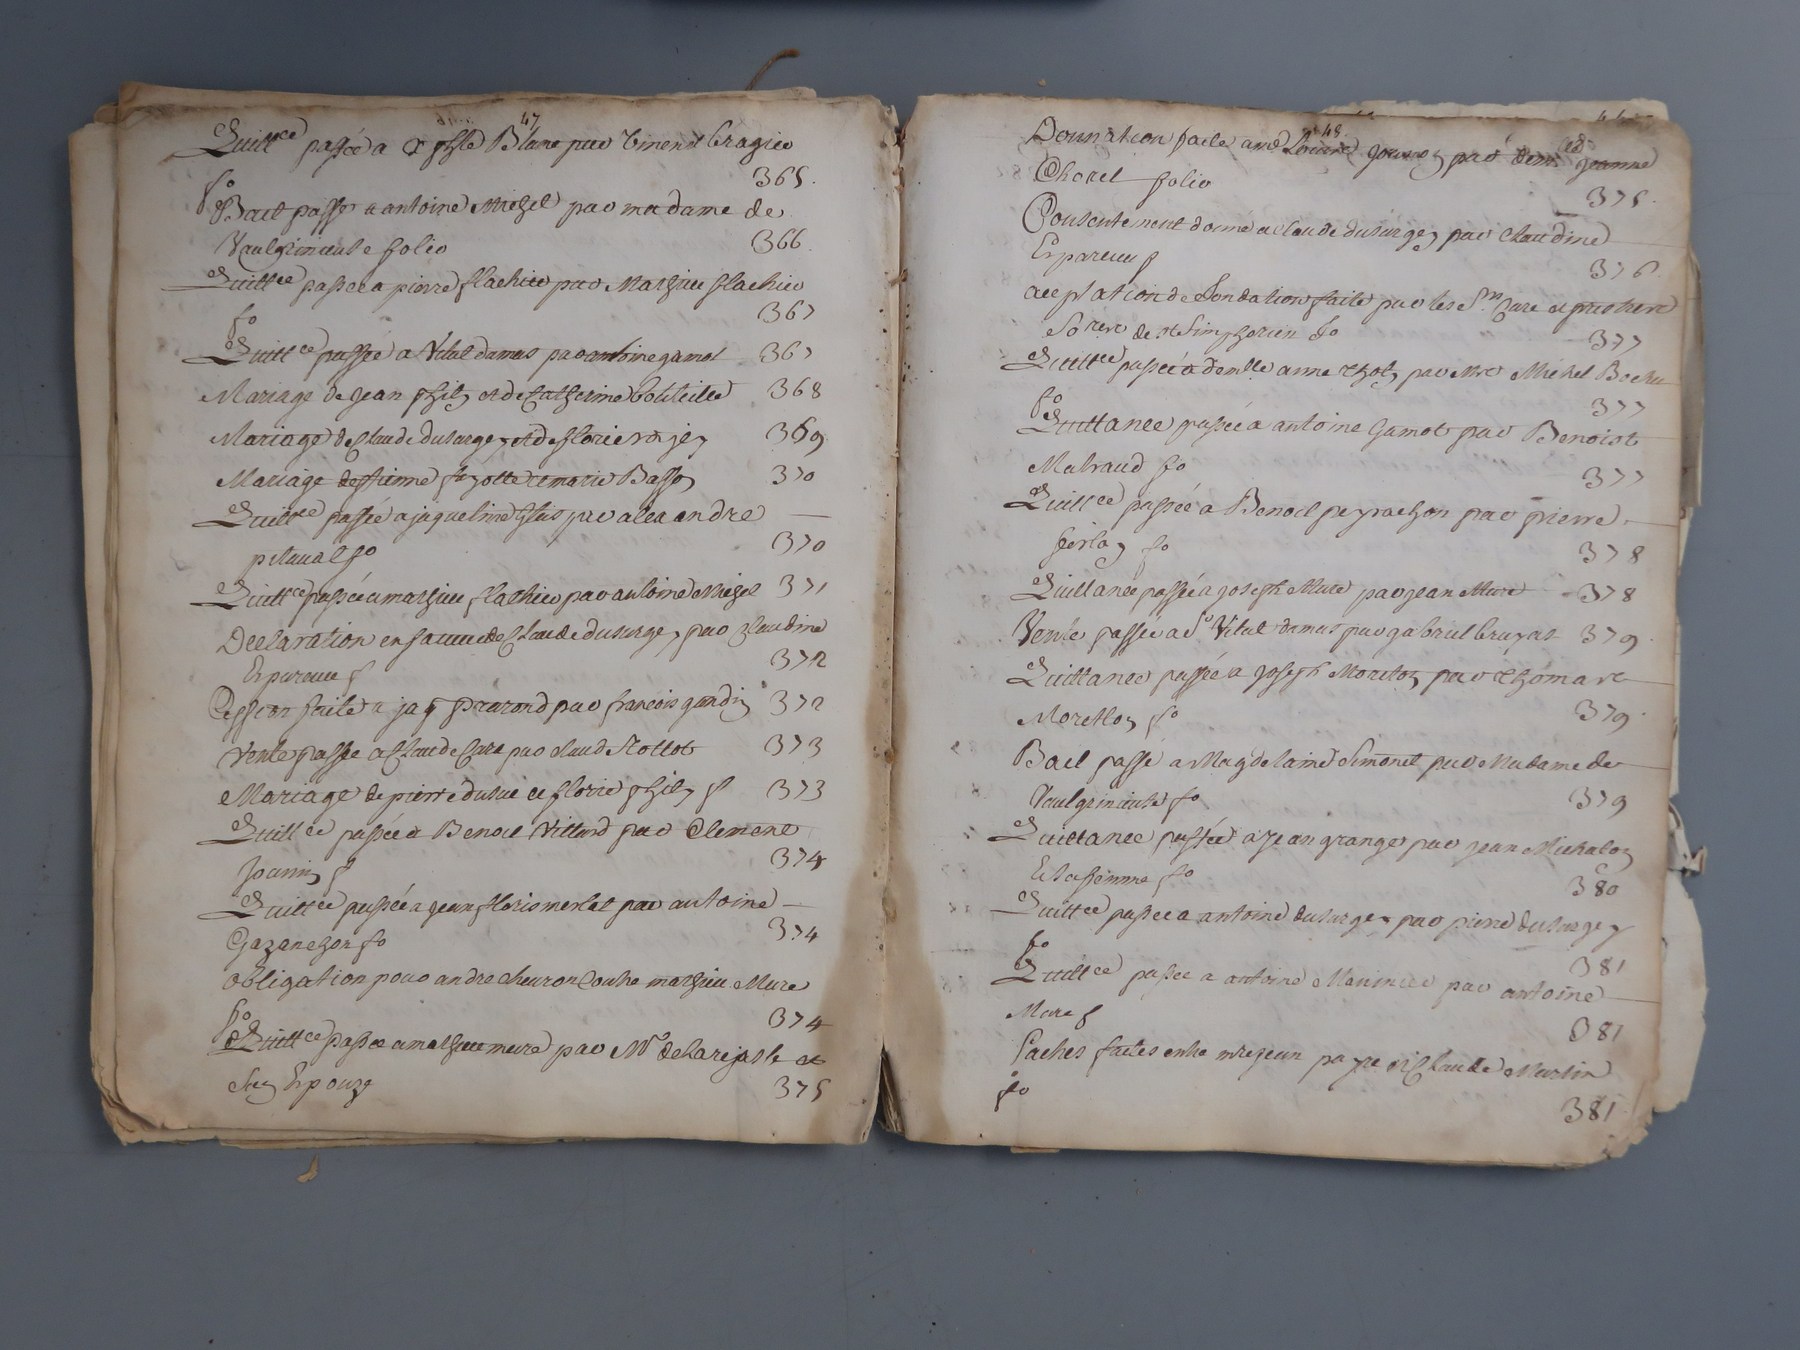 47
Quittce passée a Xphle Blanc par Vincent Cragier
fo 365.
Bail passe a antoine Michel par madame de
Vaulgrineuse folio 366.
Quittce passee a pierre flachier par Mathieu flachier
fo 367
Quittce passée a Vital damas par antoine gamot 367
Mariage de jean philz et de Catherine bouteille 368
Mariage de Claude dusurgey et de florie 369
Mariage destienne et marie Basson 370
Quittce passée a jaqueline par alexandre
pitaval fo 370
Quittce passée a mathieu flachier par antoine Michel 371
Declaration en faveur de Claude dusurgey par Claudine
Eparceu f 372
Cession faite a jaq prarond par francois gandin 372
Vente passée a Claude Cara par claude Nottot 373
Mariage de pierre et florie philz f 373
Quittce passée a Benoit Villard par Clement
Joannin f 374
Quittce passée a jean merlat par antoine
Gazanchon fo 374
obligation pour andre cheuron Contre mathieu Mure
fo 374
Quittce passee a mathieu mure par Mr de Larejasse et
Son Epouze 375
48
Donnation faite a par jeanne
Chorel folio 375.
Consentement donné a Claude dusurgey par Claudine
Eparceu f 376
acceptation de fondation faite par les Srs Cure et
de St Simphorien fo 377
Quittce passée a demlle anne par Mre Michel
fo 377
Quittance passée a antoine Gamot par Benoist
Malvaud fo 377
Quittce passée a Benoit peyrachon par pierre
fo 378
Quittance passée a joseph Mure par jean Mure 378
Vente passée a Sr Vital damas par gabriel bruyas 379
Quittance passée a joseph Moretton par thomas
Moretton fo 379.
Bail passé a Magdelaine Simonet par Madame de
Vaulgrineuse fo 379
Quittance passée a jean grange par jean Michalon
Et sa femme fo 380
Quittce passee a antoine dusurgey par pierre dusurgey
fo 381
Quittce passee a antoine par antoine
Mure f 381
Paches faites entre mre jean et Claude Martin
fo 381